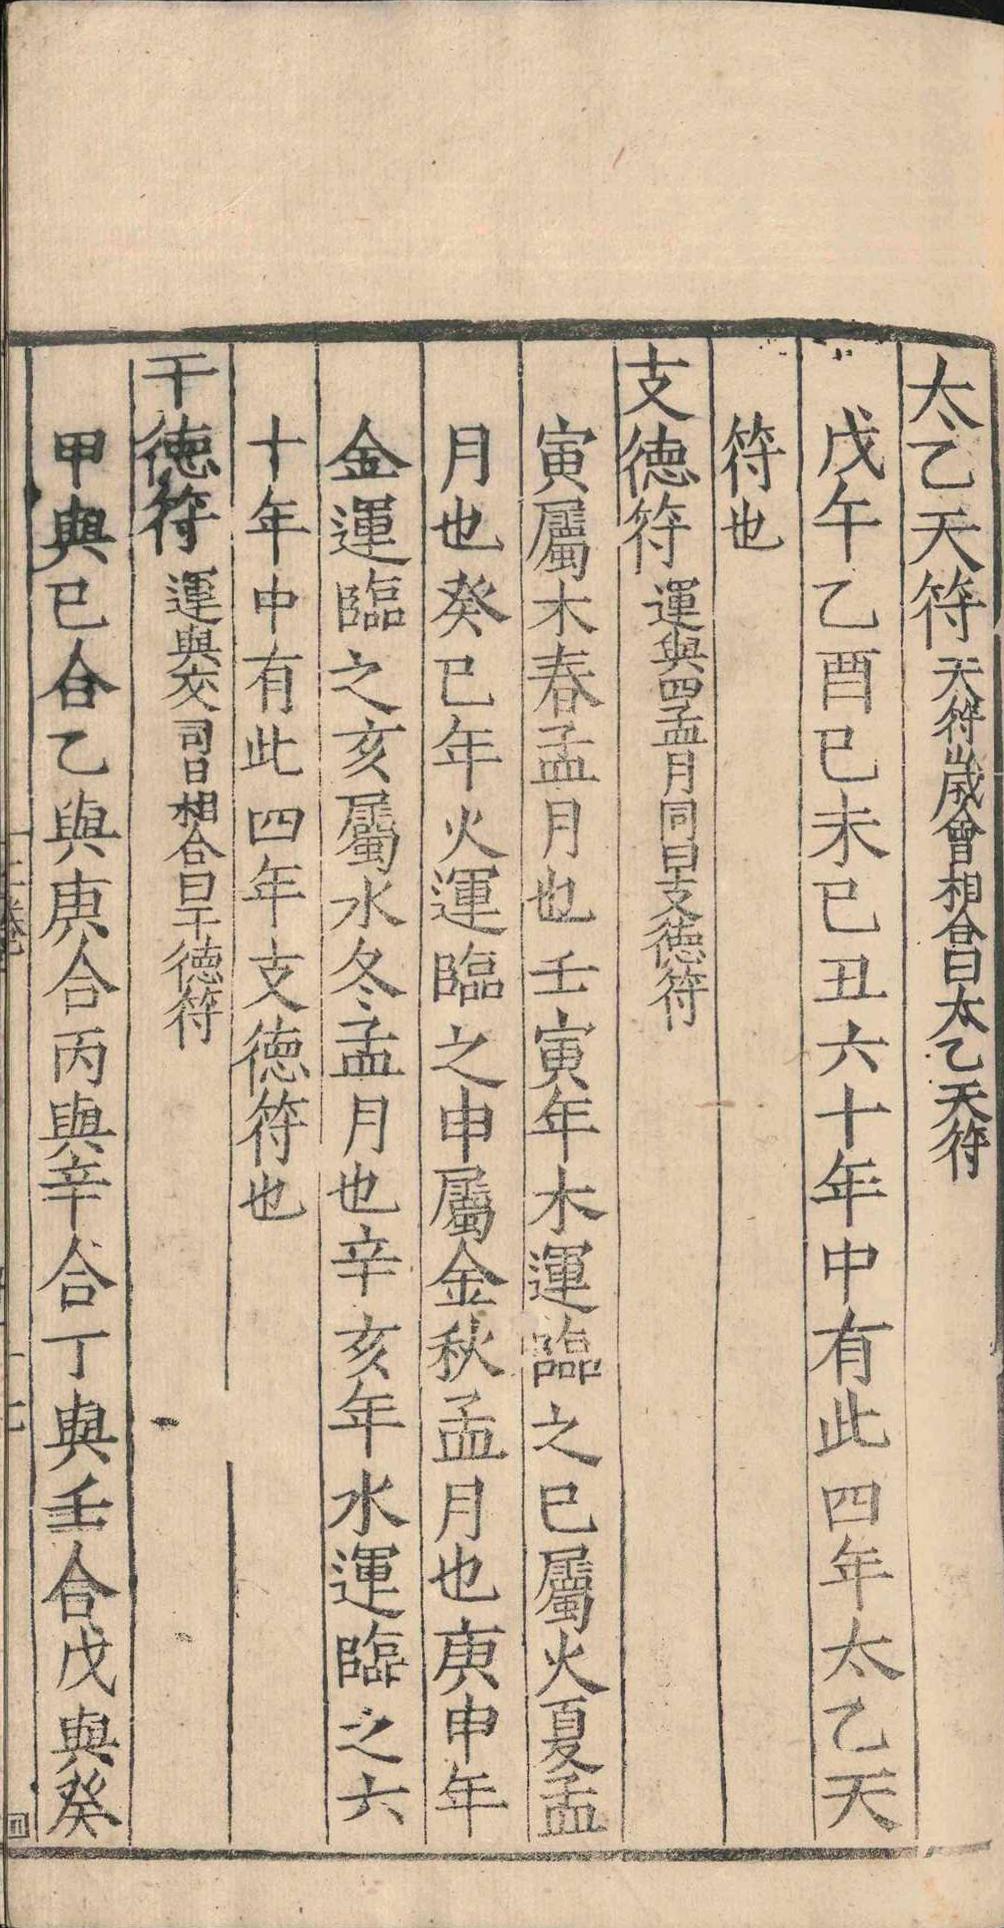 太乙天符天符歲會相合曰太乙天符
戊午乙酉已未已丑六十年中有此四年太乙天
符也
支德符運與四孟月同曰支德符
寅屬木春孟月也壬寅年木運臨之巳屬火夏孟
月也癸巳年火運臨之申屬金秋孟月也庚申年
金運臨之亥屬水冬孟月也辛亥年水運臨之六
十年中有此四年支德符也
干德符運與交司日相合曰干德符
甲與已合乙與庚合丙與辛合丁與壬合戊與癸